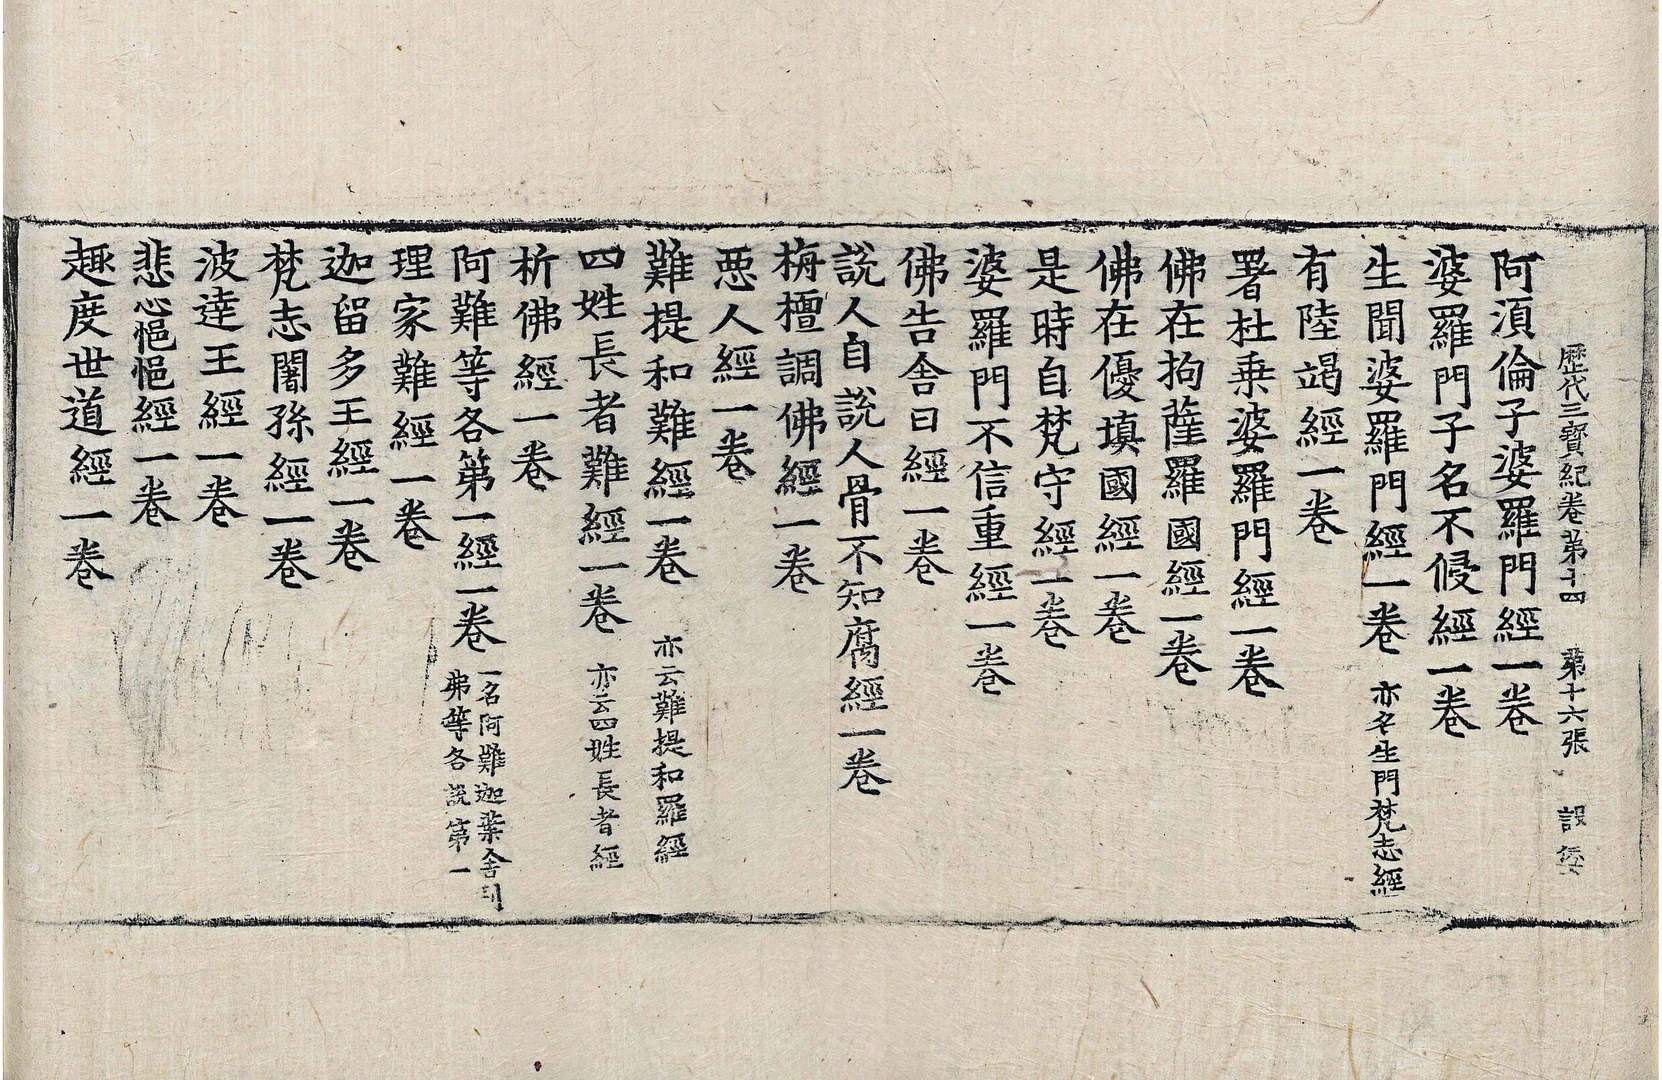 歷代三寶紀卷第十四 第十六張 設
阿湏倫子婆羅門經一卷
婆羅門子名不侵經一卷
生聞婆羅門經一卷 亦名生門梵志經
有陸竭經一卷
署杜乗婆羅門經一卷
佛在拘薩羅國經一卷
佛在優填國經一卷
是時自梵守經一卷
婆羅門不信重經一卷
佛告舎曰經一卷
説人自説人骨不知腐經一卷
栴檀調佛經一卷
惡人經一卷
難提和難經一卷 亦云難提和羅經
四姓長者難經一卷 亦云四姓長者經
析佛經一卷
阿難等各第一經一卷 一名阿難迦葉舎利
弗等各説第一
理家難經一卷
迦留多王經一卷
梵志闍孫經一卷
波達王經一卷
悲心悒悒經一卷
趣度世道經一卷